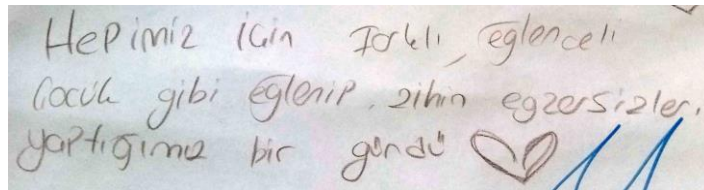 Hepimiz için farklı, eğlenceli
Çocuk gibi eğlenip, zihin egzersizleri,
yaptığımız bir gündü